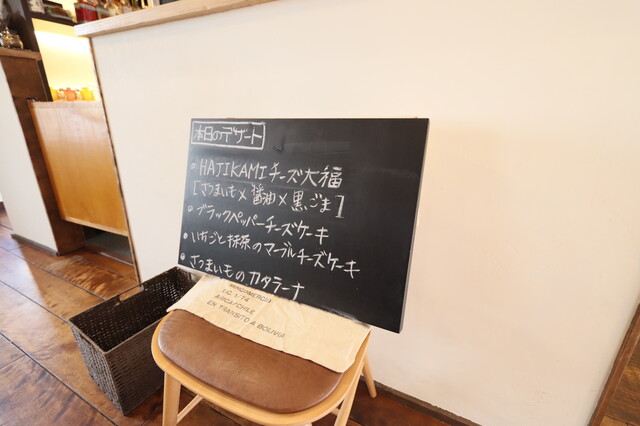 本日のデザート
• HAJIKAMIチーズ大福
[さつまいも×醤油×黒ごま]
• ブラックペッパーチーズケーキ
• いちごと抹茶のマーブルチーズケーキ
• さつまいものカタラーナ
LIC. 1/74
ARICA/CHILE
EN TRANSITO A BOLIVIA